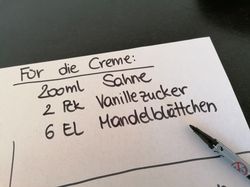 Für die Creme:
200ml Sahne
2 Pck Vanillezucker
6 EL Mandelblättchen